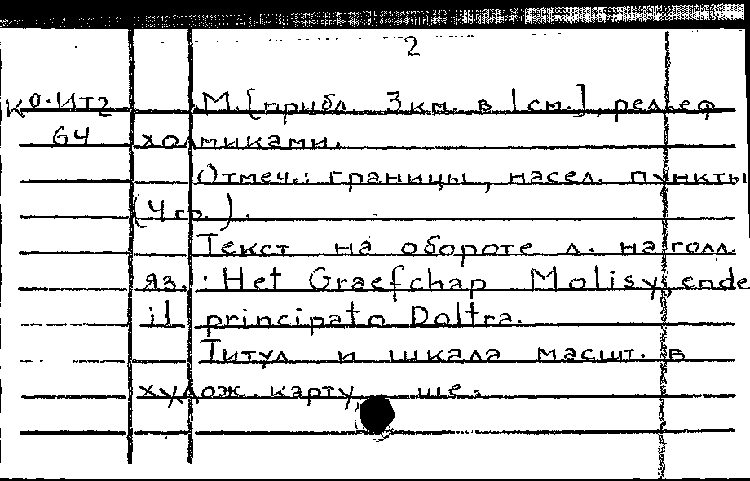 2
КО.ИТ2 М.[прибл. 3км. в 1см.], рельеф
64 холмиками.
Отмеч.: границы, насел. пункты
(4 гр.).
Текст на обороте л. на голл.
яз.: Het Graefchap Molisy, ende
il principato Doltra.
Титул и шкала масшт. в
худож. картуше.